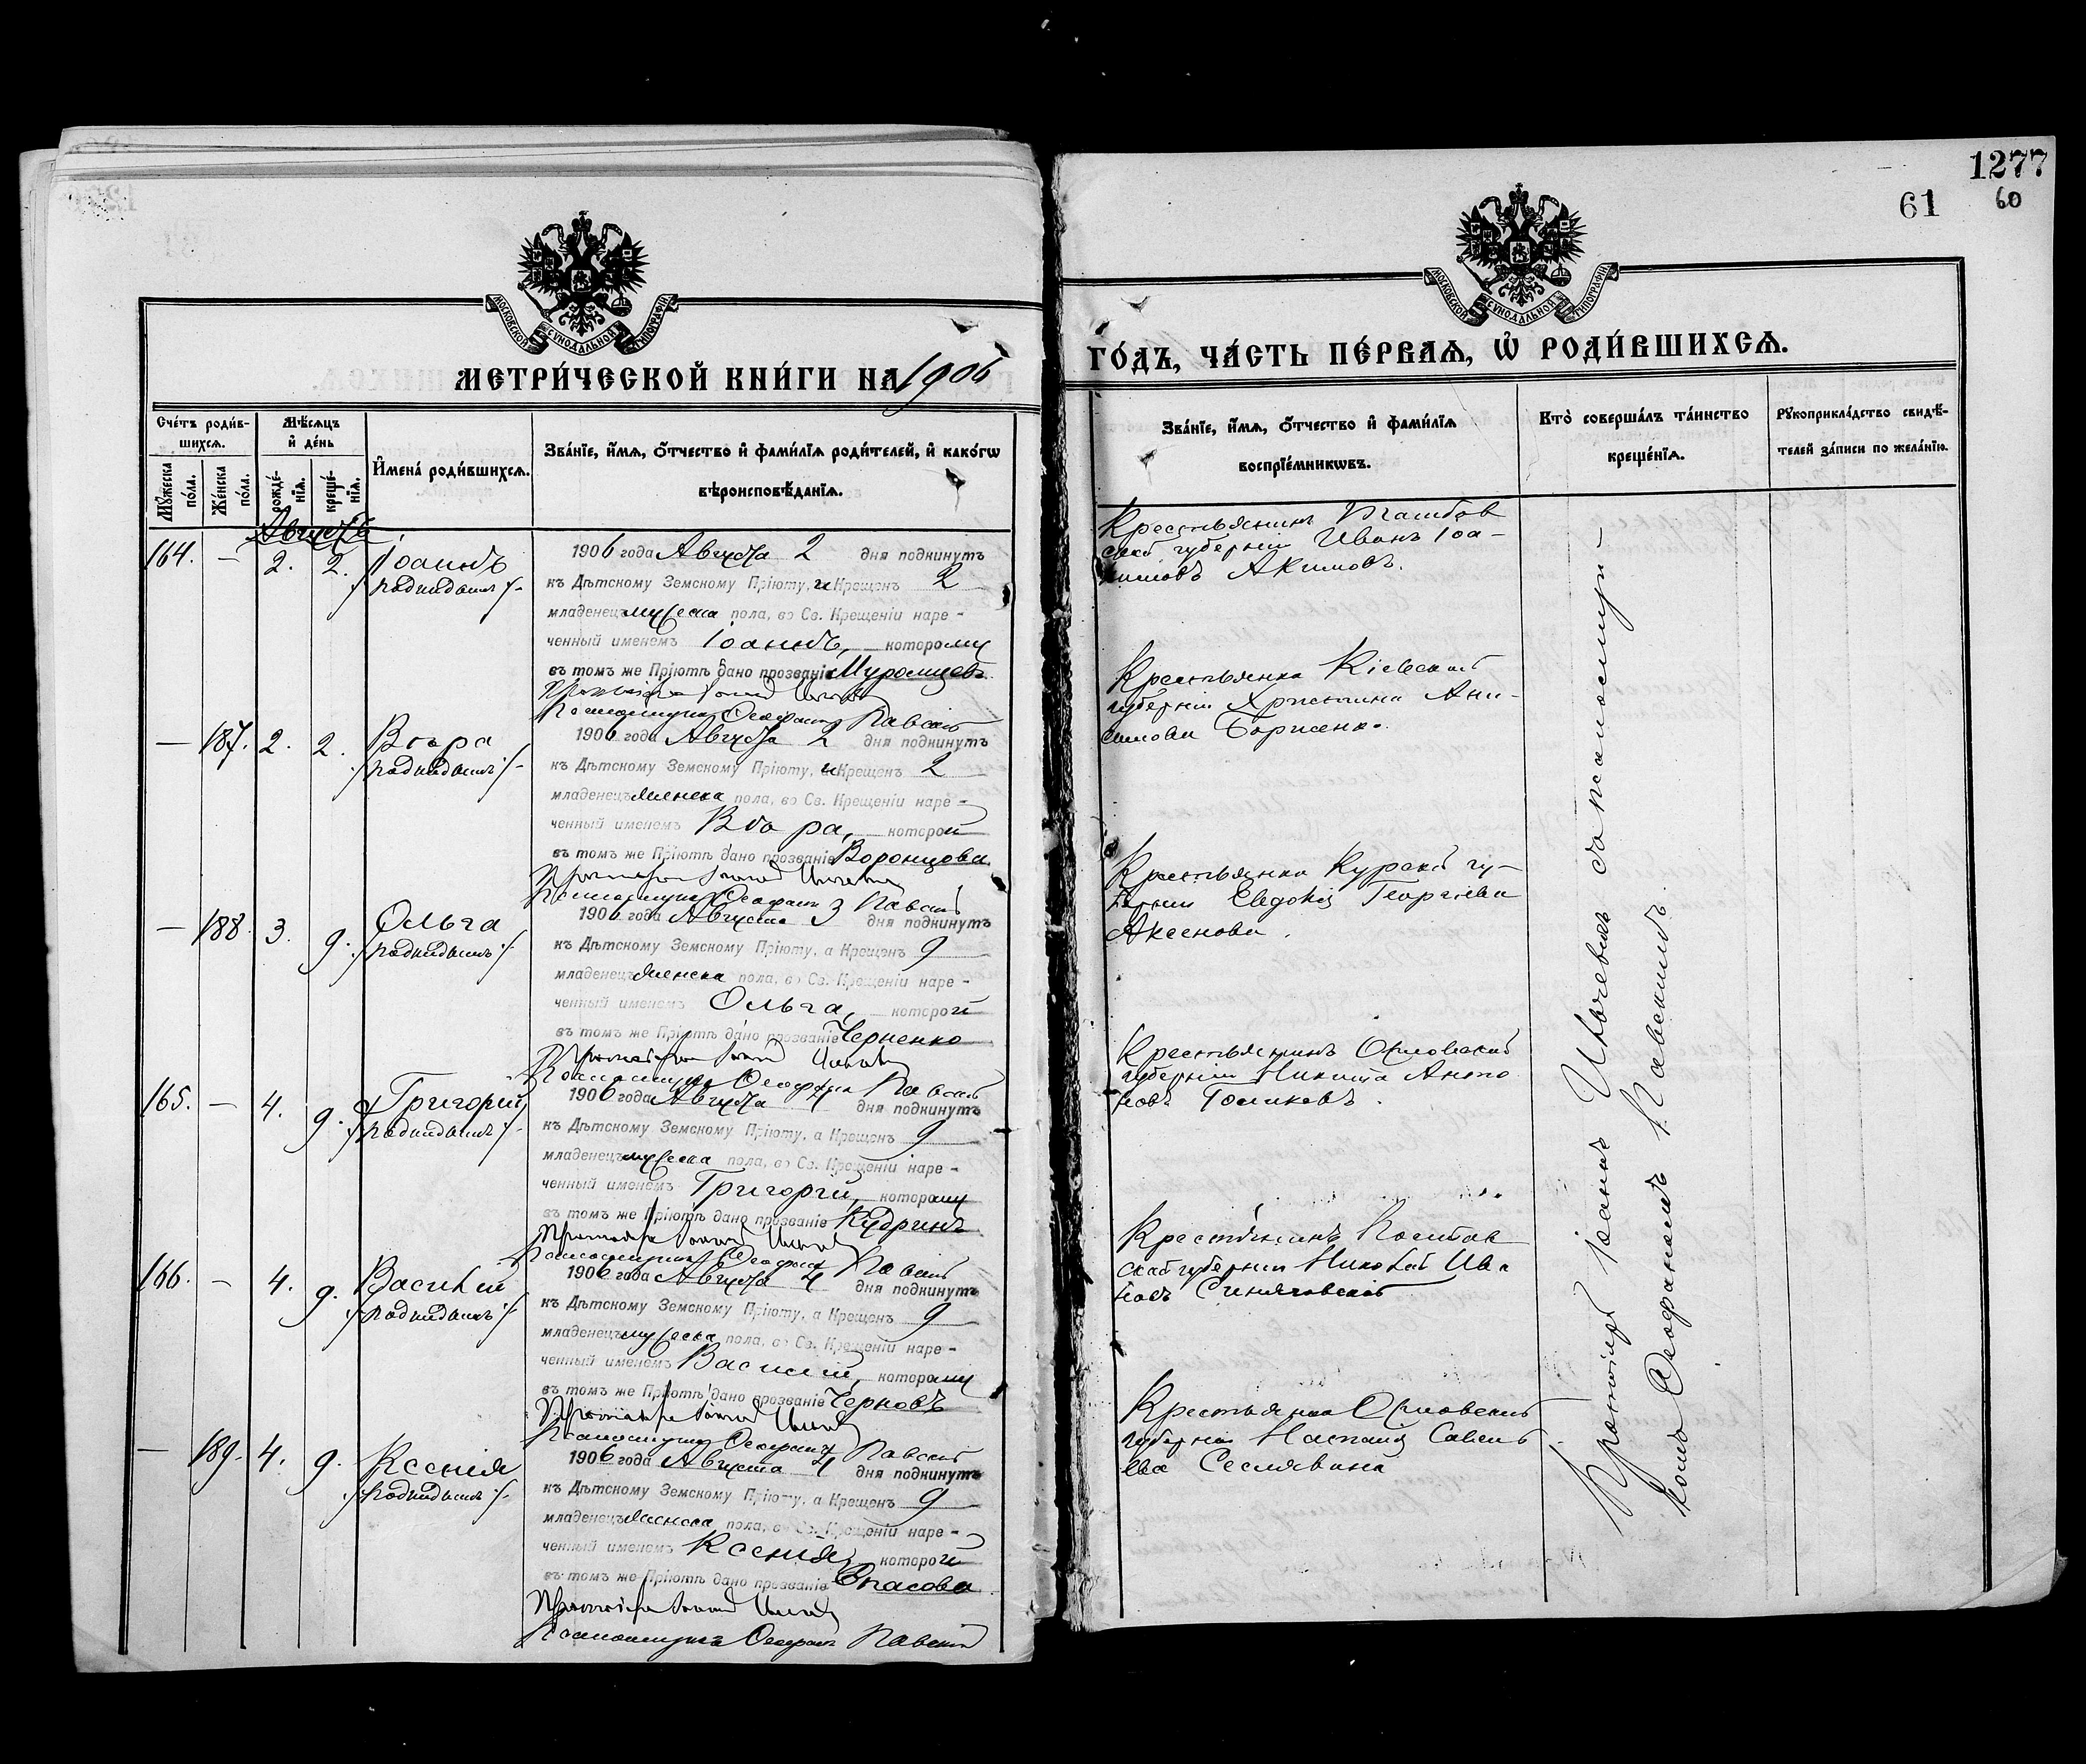 1277
61 60
МОСКОВСКОЙ СѴНОДАЛЬНОЙ ТИПОГРАФІИ
МОСКОВСКОЙ СѴНОДАЛЬНОЙ ТИПОГРАФІИ
МЕТРИ́ЧЕСКОЙ КНИ́ГИ НА 1906
ГО́ДЪ, ЧА́СТЬ ПЕ́РВАѦ, Ѡ҆ РОДИ́ВШИХСѦ.
Сче́тъ роди́в-
шихсѧ.
Мꙋ́жеска по́ла.
Же́нска по́ла.
Мѣ́сѧцъ и҆ де́нь
рожде́-нїѧ.
креще́-нїѧ.
И҆мена̀ роди́вшихсѧ.
Зва́нїе, и҆́мѧ, ѻ҆́тчество и҆ фами́лїѧ роди́телей, и҆ како́гѡ
вѣроисповѣ́данїѧ.
Зва́нїе, и҆́мѧ, ѻ҆́тчество и҆ фами́лїѧ
воспрїе́мникѡвъ.
Кто̀ соверша́лъ та́инство
креще́нїѧ.
Рꙋкоприкла́дство свидѣ́-
телей за́писи по жела́нїю.
Августъ
164. — 2. 2. Іоаннъ
/подкидышъ/-
1906 года Августа 2 дня подкинутъ
къ Дѣтскому Земскому Пріюту, и Крещенъ 2
младенецъ мужеска пола, во Св. Крещеніи наре-
ченный именемъ Іоаннъ, которому
въ томъ же Пріютѣ дано прозваніе Муромцевъ
Протоіерей Іоаннъ
Псаломщикъ Ѳеофанъ Павскій
Крестьянинъ Тамбов
ской губерніи Иванъ Іоа-
кимовъ Акимовъ.
— 187. 2. 2. Вѣра
/подкидышъ/-
1906 года Августа 2 дня подкинутъ
къ Дѣтскому Земскому Пріюту, и Крещенъ 2
младенецъ женска пола, во Св. Крещеніи наре-
ченный именемъ Вѣра, которой
въ томъ же Пріютѣ дано прозваніе Воронцова
Протоіерей Іоаннъ
Псаломщикъ Ѳеофанъ Павскій
Крестьянка Кіевской
губерніи Христина Ани-
симова Борисенко.
— 188. 3. 9. Ольга
/подкидышъ/
1906 года Августа 3 дня подкинутъ
къ Дѣтскому Земскому Пріюту, а Крещенъ 9
младенецъ женска пола, во Св. Крещеніи наре-
ченный именемъ Ольга, которой
въ томъ же Пріютѣ дано прозваніе Черненко
Протоіерей Іоаннъ
Псаломщикъ Ѳеофанъ Павскій
Крестьянка Курской гу-
берніи Евдокія Георгіева
Аксенова.
165. — 4. 9. Григорій
/подкидышъ/-
1906 года Августа 4 дня подкинутъ
къ Дѣтскому Земскому Пріюту, а Крещенъ 9
младенецъ мужеска пола, во Св. Крещеніи наре-
ченный именемъ Григорій, которому
въ томъ же Пріютѣ дано прозваніе Кудринъ
Протоіерей Іоаннъ
Псаломщикъ Ѳеофанъ Павскій
Крестьянинъ Орловской
губерніи Никита Анто
новъ Голиковъ.
166. — 4. 9. Василій
/подкидышъ/
1906 года Августа 4 дня подкинутъ
къ Дѣтскому Земскому Пріюту, а Крещенъ 9
младенецъ мужеска пола, во Св. Крещеніи наре-
ченный именемъ Василій, которому
въ томъ же Пріютѣ дано прозваніе Черновъ
Протоіерей Іоаннъ
Псаломщикъ Ѳеофанъ Павскій
Крестьянинъ Полтав
ской губерніи Николай Ива
новъ
— 189. 4. 9. Ксенія
/подкидышъ/-
1906 года Августа 4 дня подкинутъ
къ Дѣтскому Земскому Пріюту, а Крещенъ 9
младенецъ женска пола, во Св. Крещеніи наре-
ченный именемъ Ксенія, которой
въ томъ же Пріютѣ дано прозваніе Спасова
Протоіерей Іоаннъ
Псаломщикъ Ѳеофанъ Павскій
Крестьянка Орловской
губерніи Наталія Савель
ева Сеславина
Протоіерей Іоаннъ съ псаломщи-
комъ Ѳеофаномъ Павскимъ.